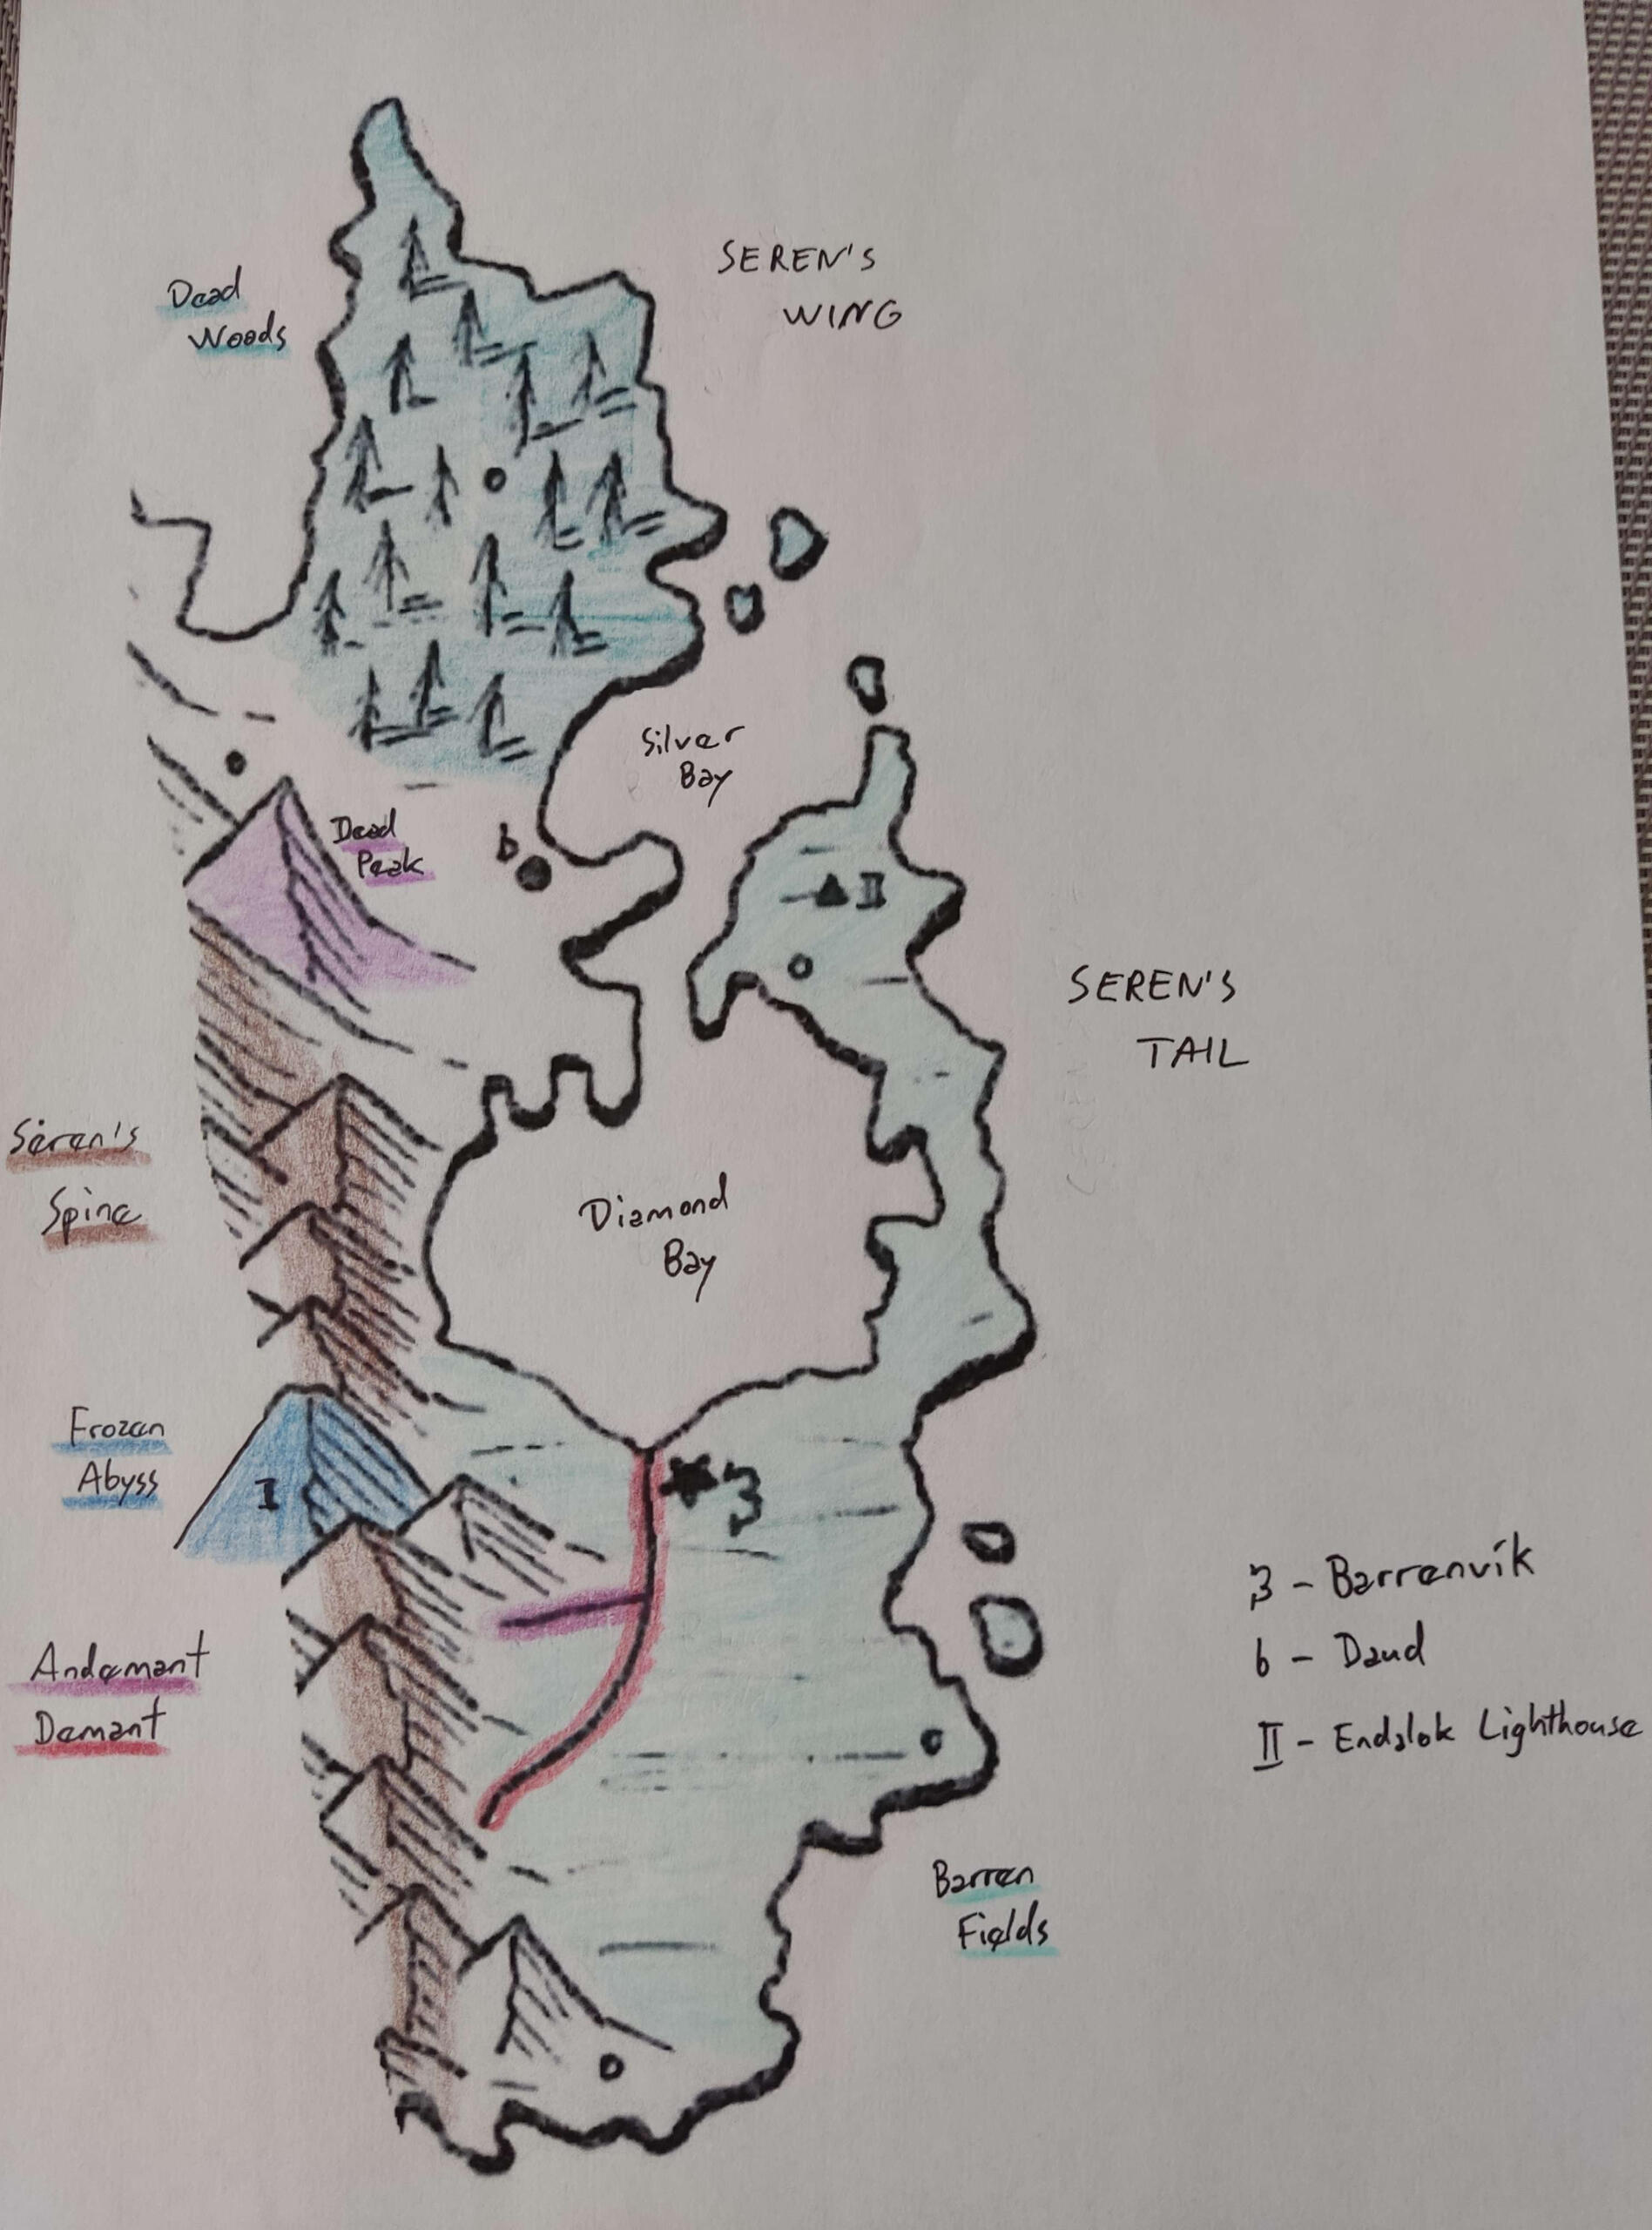 SEREN'S
WING
Dead
Woods
Silver
Bay
Dead
Peak
6
II
SEREN'S
TAIL
Seren's
Spine
Diamond
Bay
Frozen
Abyss
I
3
Andamant
Demant
3 - Barrenvík
6 - Daud
II - Endalok Lighthouse
Barren
Fields